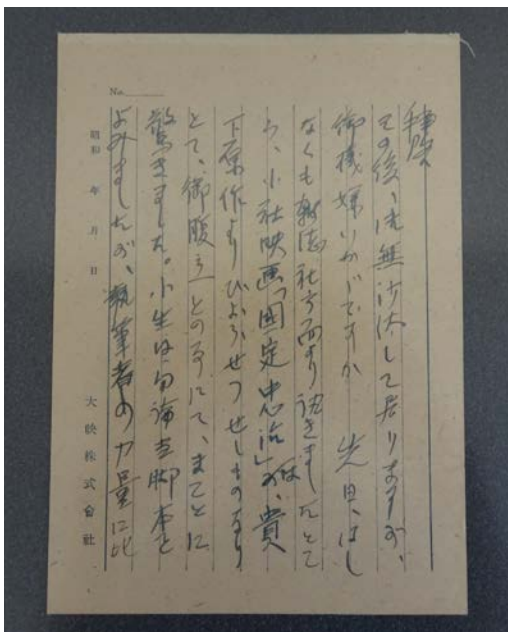 拝啓
その後、御無沙汰して居りますが、
御機嫌いかゞですか 先日、はし
なくも雑誌社方面より訊きましたとこ
ろ、小社映画「国定忠治」が、貴
下原作よりひょうせつせしものなり
とて、御腹立との事にて、まことに
驚きました。小生は勿論右脚本を
よみましたが、執筆者の力量に比
No.
昭和 年 月 日
大映株式会社